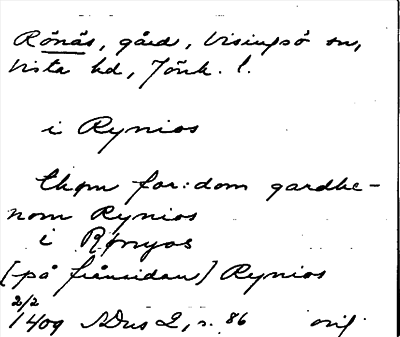 Rönäs, gård, Visingsö sn,
Vista hd, Jönk. l.
i Rynios
thøm for:dom gardhe-
nom Rynios
i Rønyos
[på frånsidan] Rynios
2/2
1409 SDns 2, s. 86 orig